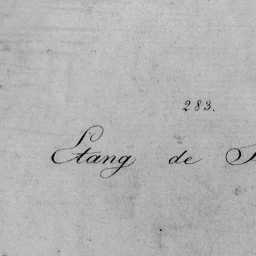 283.
Etang de